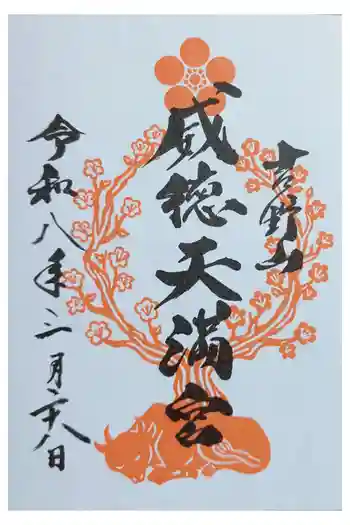 吉野山
威徳天満宮
令和八年二月二十八日